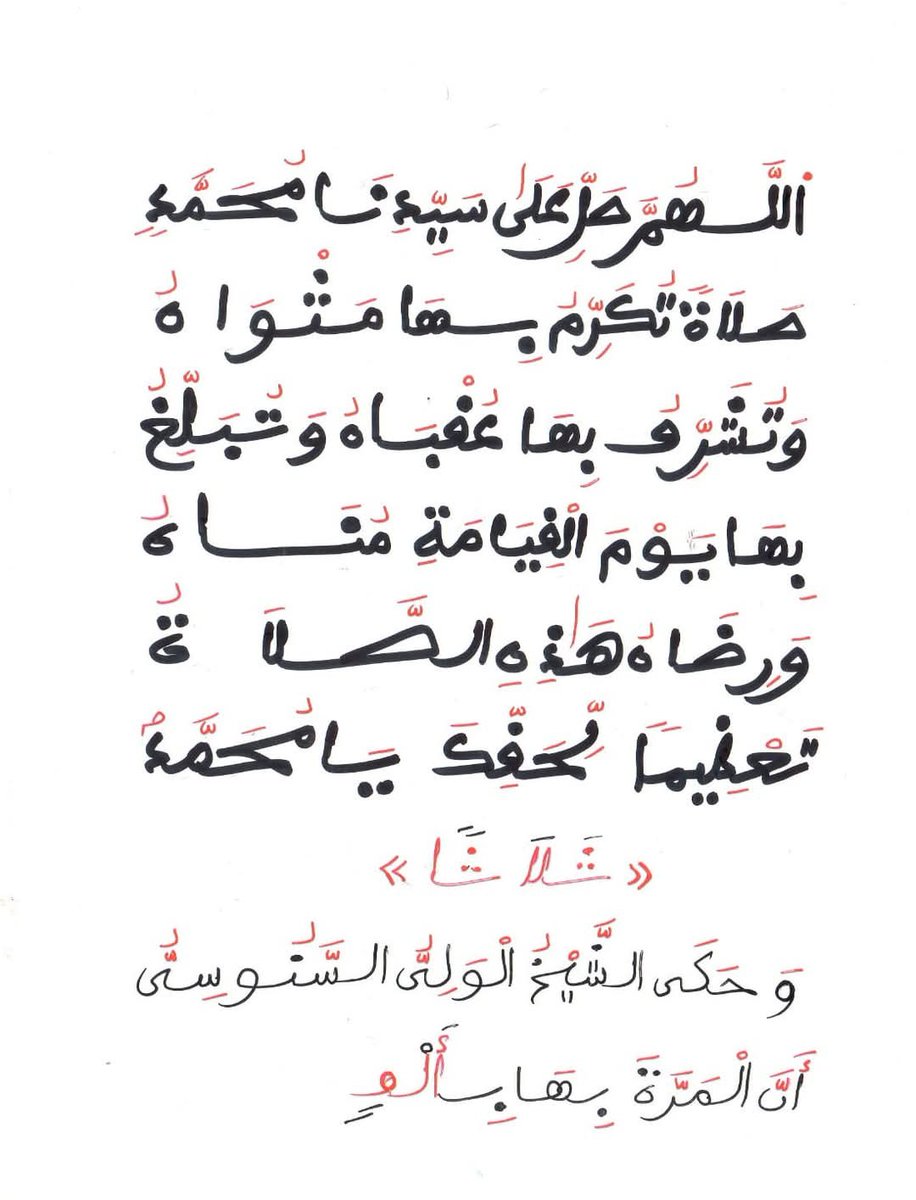 اللَّهُمَّ صَلِّ عَلَى سَيِّدِنَا مُحَمَّدٍ
صَلَاةً تُكَرِّمُ بِهَا مَثْوَاهُ
وَتُشَرِّفُ بِهَا عُقْبَاهُ وَتُبَلِّغُ
بِهَا يَوْمَ الْقِيَامَةِ مُنَاهُ
وَرِضَاهُ هَذِهِ الصَّلَاةُ
تَعْظِيمًا لِّحَقِّكَ يَا مُحَمَّدُ
« ثَلَاثًا »
وَحَكَى الشَّيْخُ الْوَلِىُّ السَّنُوسِىُّ
أَنَّ الْمَرَّةَ بِهَا بِأَلْفٍ